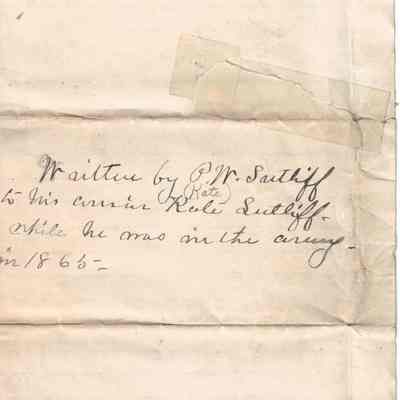 Written by P. W. Sutliff
(Kate)
to his cousin Kate Sutliff-
while he was in the army-
in 1865-